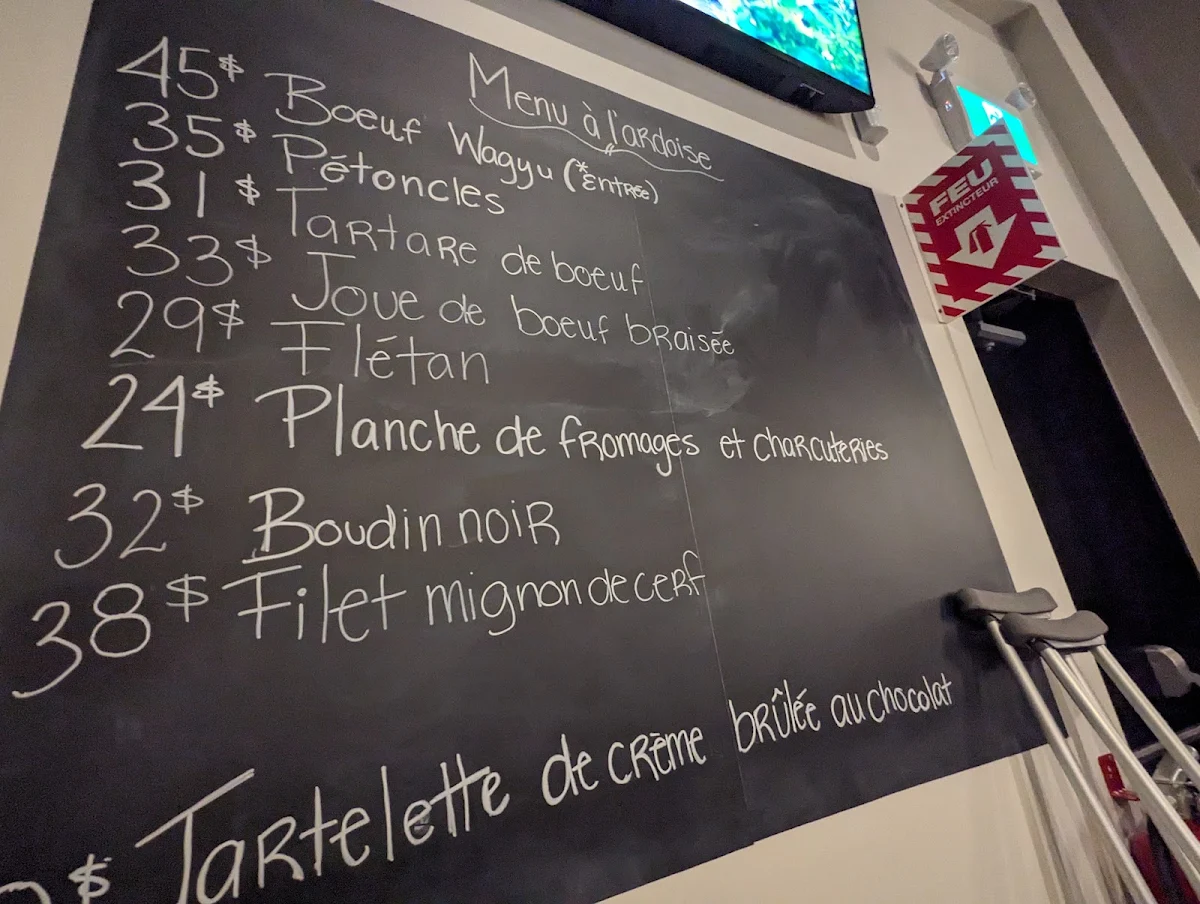 Menu à l'ardoise
45$ Boeuf Wagyu (*Entrée)
35$ Pétoncles
31$ Tartare de boeuf
33$ Joue de boeuf braisée
29$ Flétan
24$ Planche de fromages et charcuteries
32$ Boudin noir
38$ Filet mignon de cerf
$ Tartelette de crème brûlée au chocolat
FEU
EXTINCTEUR